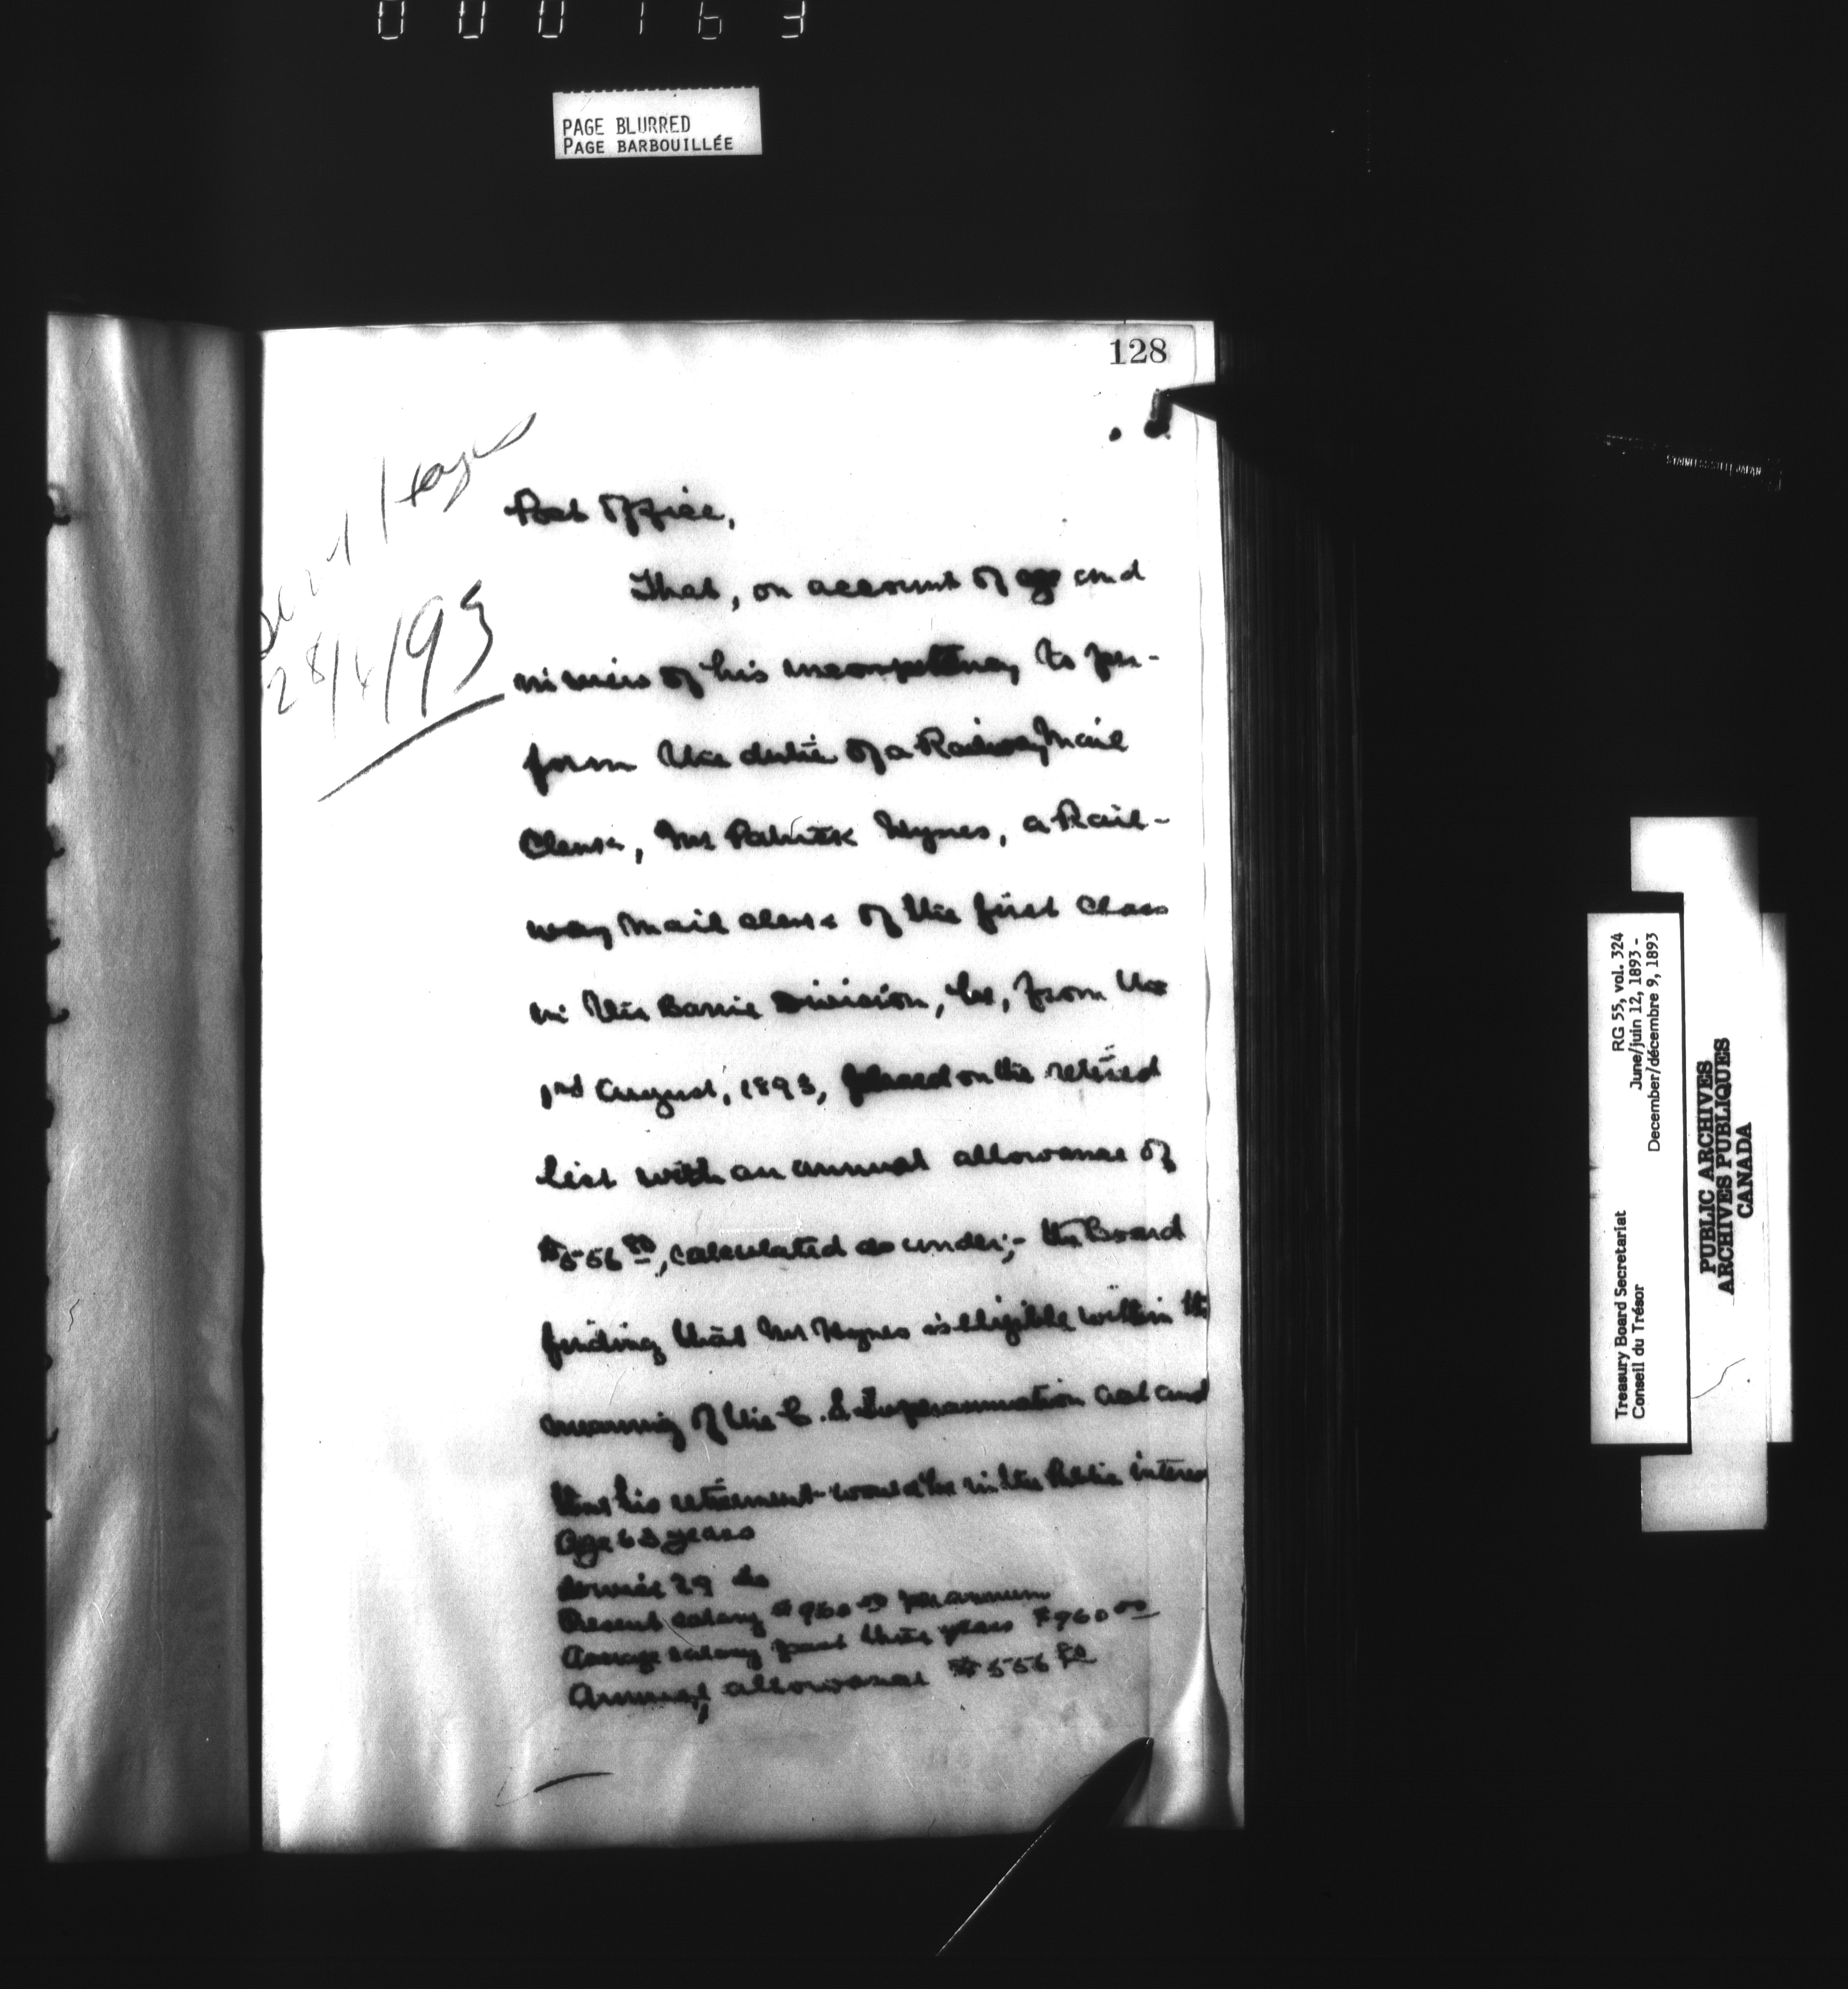 000163
PAGE BLURRED
PAGE BARBOUILLÉE
128
28/6/93
Post Office,
That, on account of age and
in view of his incompetency to per-
form the duties of a Railway Mail
Clerk, Mr Patrick Hynes, a Rail-
way Mail clerk of the first Class
in the Barrie Division, be, from the
1st August, 1893, placed on the retired
list with an annual allowance of
$556 80, calculated as under;- the Board
finding that Mr Hynes is eligible within the
meaning of the C. S. Superannuation act and
that his retirement would be in the Public interest
Age 63 years
Service 29 do
Present salary $960 00 per annum
Average salary past three years $960 00
Annual allowance $556 80
STAINLESS STEEL JAPAN
RG 55, vol. 324
June/juin 12, 1893 -
December/décembre 9, 1893
Treasury Board Secretariat
Conseil du Trésor
PUBLIC ARCHIVES
ARCHIVES PUBLIQUES
CANADA